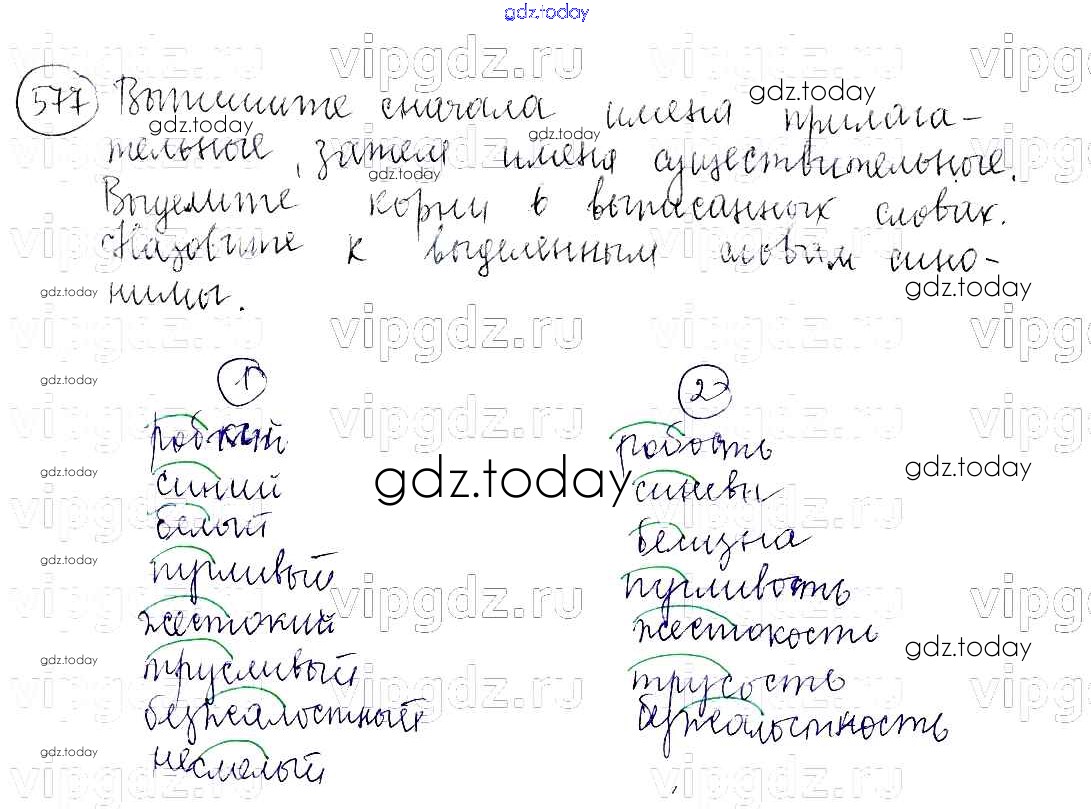 gdz.today
577 Выпишите сначала имена прилага-
тельные, затем имена существительные.
Выделите корни в выписанных словах.
Назовите к выделенным словам сино-
нимы.
1 2
робкий робость
синий синева
белый белизна
пугливый пугливость
жестокий жестокость
трусливый трусость
безжалостный безжалостность
несмелый
vipgdz.ru
gdz.today